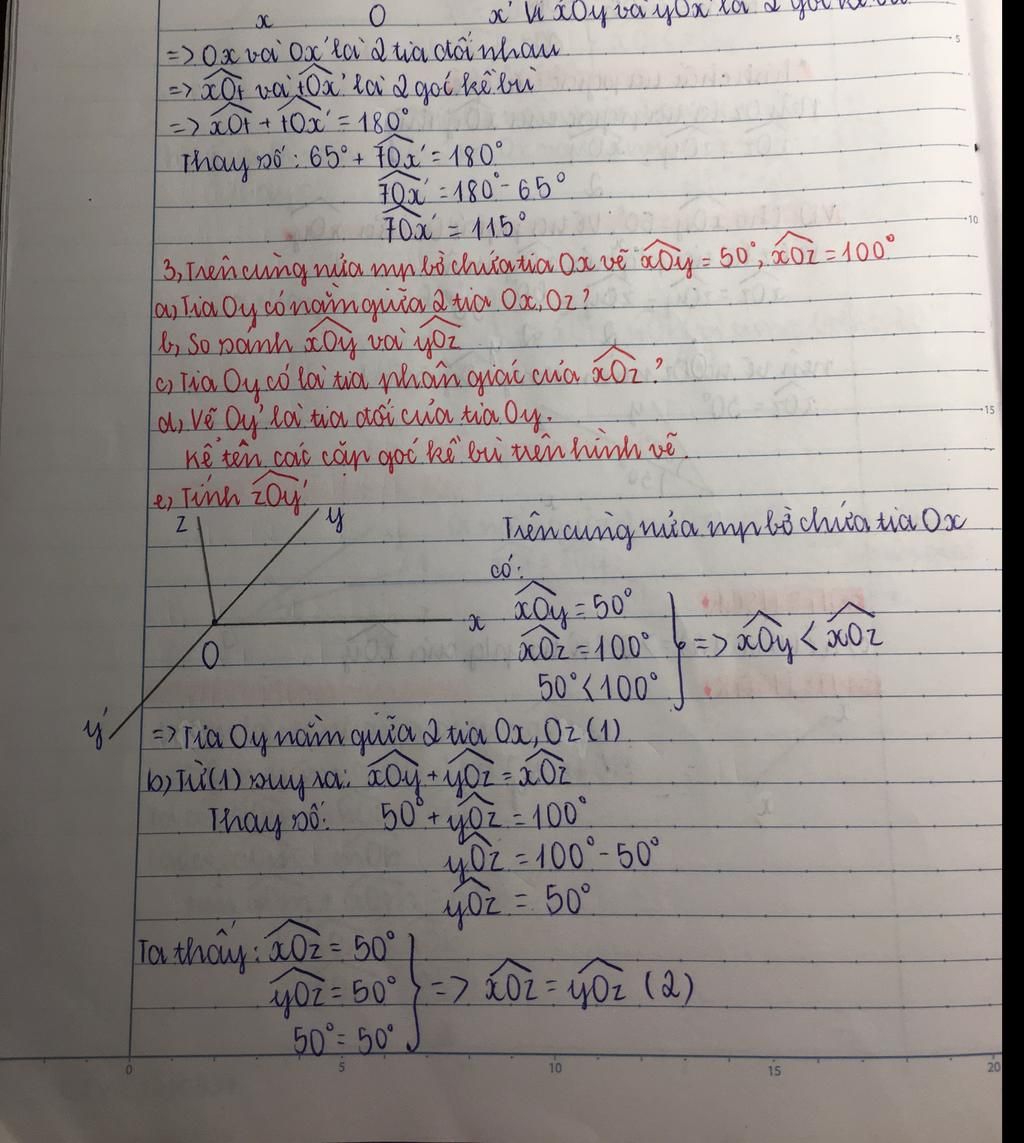 x O x' Vì xOy và yOx' là 2 góc kề bù
=> Ox và Ox' là 2 tia đối nhau
=> xOt và tOx' là 2 góc kề bù
=> xOt + tOx' = 180°
Thay số: 65° + tOx' = 180°
tOx' = 180° - 65°
tOx' = 115°
3, Trên cùng nửa mp bờ chứa tia Ox vẽ xOy = 50°, xOz = 100°
a, Tia Oy có nằm giữa 2 tia Ox, Oz?
b, So sánh xOy và yOz
c, Tia Oy có là tia phân giác của xOz?
d, Vẽ Oy' là tia đối của tia Oy.
Kể tên các cặp góc kề bù trên hình vẽ.
e, Tính zOy'
z y
x
O
y'
Trên cùng nửa mp bờ chứa tia Ox
có:
xOy = 50°
xOz = 100° => xOy < xOz
50° < 100°
=> Tia Oy nằm giữa 2 tia Ox, Oz (1)
b, Từ (1) suy ra: xOy + yOz = xOz
Thay số: 50° + yOz = 100°
yOz = 100° - 50°
yOz = 50°
Ta thấy: xOz = 50°
yOz = 50° => xOz = yOz (2)
50° = 50°
0 5 10 15 20
5
10
15